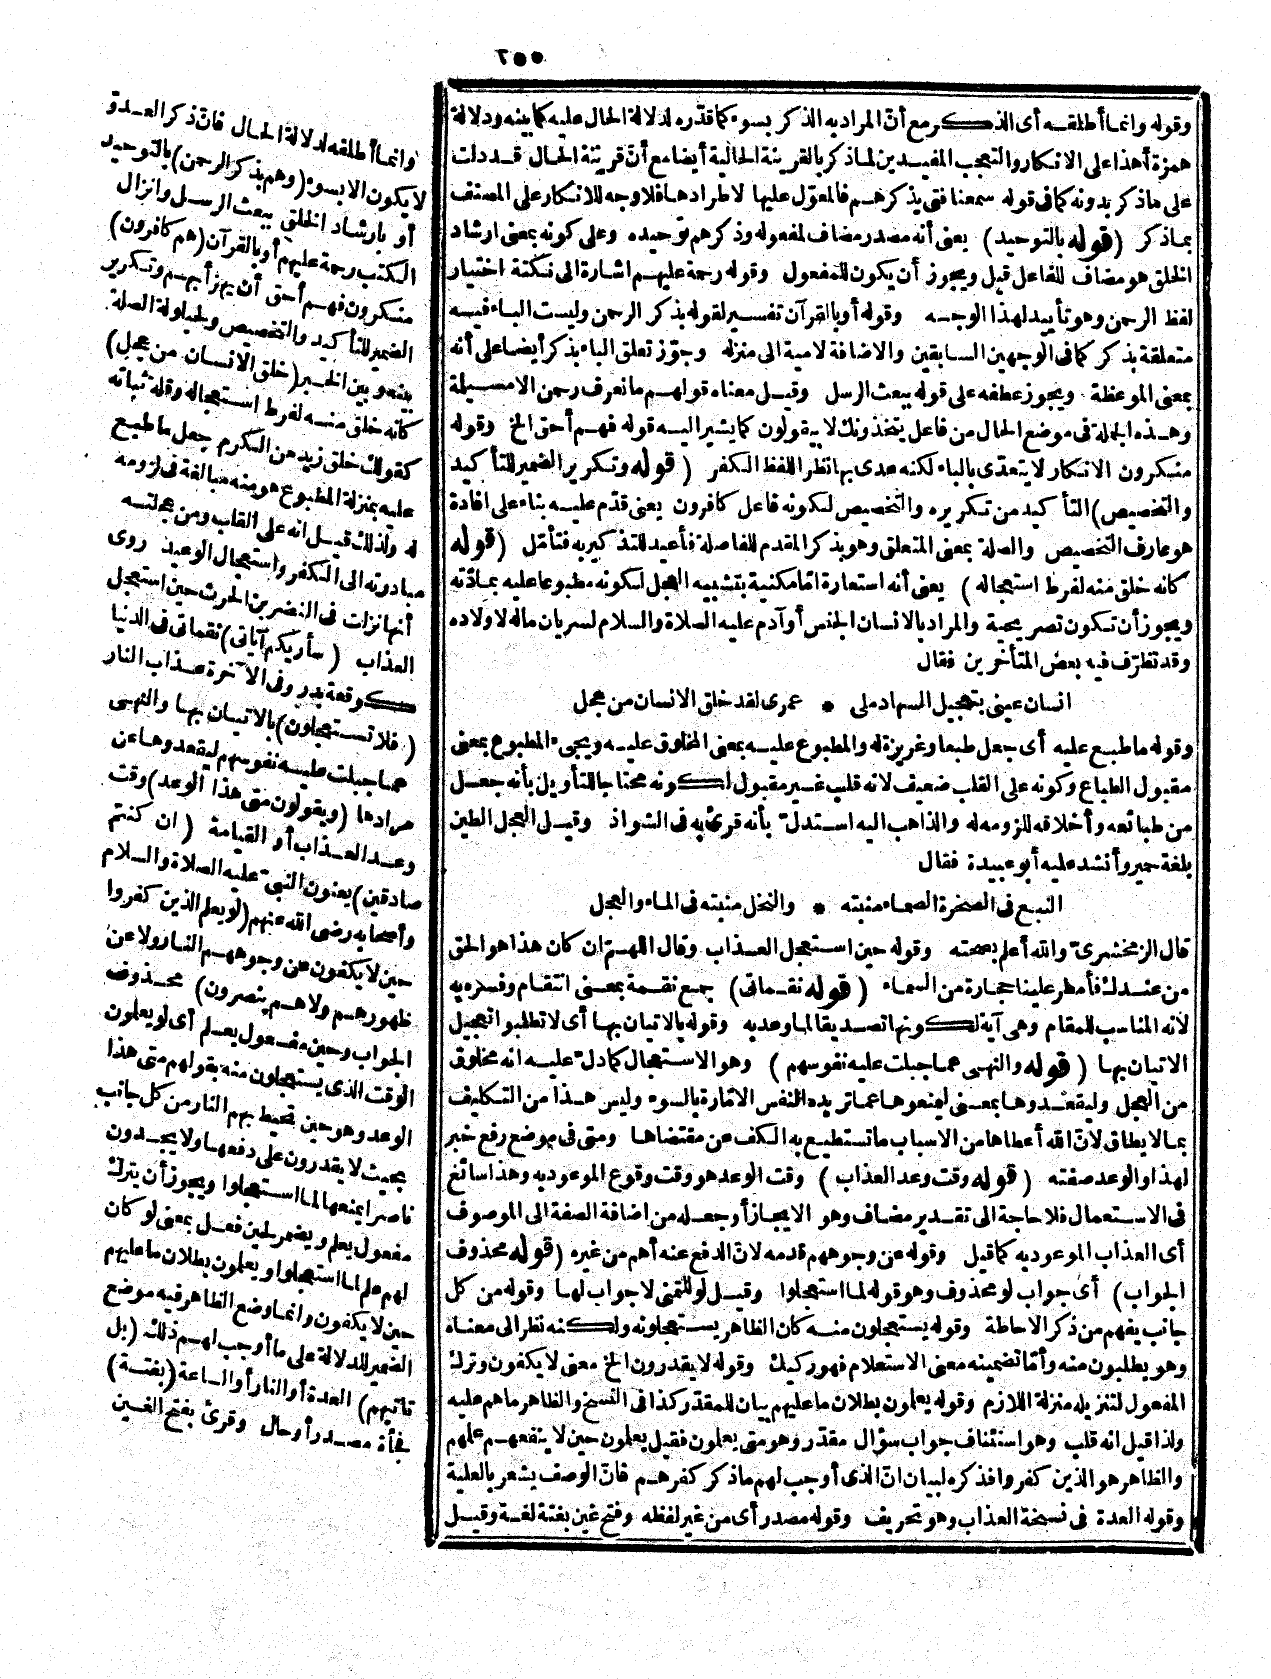 ٢٥٥
وقوله وانما أطلقه أى الذكر مع أنّ المراد به الذكر بسوء كما قدّره لدلالة الحال عليه كما بينه ودلالة
همزة أهذا على الانكار والتعجب المفيدين لماذكر بالقرينة الحالية أيضا مع أنّ قرينة الحال قد دلت
على ماذكر بدونه كما فى قوله سمعنا فتى يذكرهم فالمعوّل عليها لاطرادها فلا وجه للانكار على المصنف
بماذكر (قوله بالتوحيد) يعنى أنه مصدر مضاف لمفعوله وذكرهم توحيده وعلى كونه بمعنى ارشاد
الخلق هو مضاف للفاعل قيل ويجوز أن يكون للمفعول وقوله رحمة عليهم اشارة الى نكتة اختيار
لفظ الرحمن وهو تأييد لهذا الوجه وقوله أو بالقرآن تفسير لقوله بذكر الرحمن وليست الباء فيه
متعلقة بذكر كما فى الوجهين السابقين والاضافة لامية الى منزله وجوّز تعلق الباء بذكر أيضا على أنه
بمعنى الموعظة ويجوز عطفه على قوله ببعث الرسل وقيل معناه قولهم ما نعرف رحمن الا مسيلمة
وهذه الجملة فى موضع الحال من فاعل يتخذونك لا يقولون كما يشير اليه قوله فهم أحق الخ وقوله
منكرون الانكار لا يتعدّى بالباء لكنه عدى بها نظرا للفظ الكفر (قوله وتكرير الضمير للتأكيد
والتخصيص) التأكيد من تكريره والتخصيص لكونه فاعل كافرون يعنى قدّم عليه بناء على افادة
هو عارف التخصيص والصلة بمعنى المتعلق وهو بذكر المقدم للفاصلة فأعيد للتذكير به فتأمّل (قوله
كانه خلق منه لفرط استعجاله) يعنى أنه استعارة امّا مكنية بتشبيه العجل لكونه مطبوعا عليه بمادّته
ويجوز أن تكون تصريحية والمراد بالانسان الجنس أو آدم عليه الصلاة والسلام لسريان ماله لاولاده
وقد تظرّف فيه بعض المتأخرين فقال
انسان عينى بتعجيل السهاد ملى * عمرى لقد خلق الانسان من عجل
وقوله ما طبع عليه أى جعل طبعا وغريزة له والمطبوع عليه بمعنى المخلوق عليه ويجىء المطبوع بمعنى
مقبول الطباع وكونه على القلب ضعيف لانه قلب غير مقبول لكونه محتاجا للتأويل بأنه جعل
من طبائعه وأخلاقه للزومه له والذاهب اليه استدلّ بأنه قرئ به فى الشواذ وقيل العجل الطين
بلغة حمير وأنشد عليه أبو عبيدة فقال
النبع فى الصخرة الصماء منبته * والنخل منبته فى الماء والعجل
قال الزمخشرىّ والله أعلم بصحته وقوله حين استعجل العذاب وقال اللهمّ ان كان هذا هو الحق
من عندك فأمطر علينا حجارة من السماء (قوله نقماتى) جمع نقمة بمعنى انتقام وفسره به
لانه المناسب للمقام وهى آية لكونها تصديقا لما وعد به وقوله بالاتيان بها أى لا تطلبوا تعجيل
الاتيان بها (قوله والنهى عما جبلت عليه نفوسهم) وهو الاستعجال كما دلّ عليه انه مخلوق
من العجل وليقعدوها بمعنى ليمنعوها عما تريده النفس الامّارة بالسوء وليس هذا من التكليف
بما لا يطاق لانّ الله أعطاها من الاسباب ما تستطيع به الكف عن مقتضاها ومتى فى موضع رفع خبر
لهذا والوعد صفته (قوله وقت وعد العذاب) وقت الوعد هو وقت وقوع الموعود به وهذا سائغ
فى الاستعمال فلا حاجة الى تقدير مضاف وهو الايجاز أو جعله من اضافة الصفة الى الموصوف
أى العذاب الموعود به كما قيل وقوله عن وجوههم قدمه لانّ الدفع عنه أهم من غيره (قوله محذوف
الجواب) أى جواب لو محذوف وهو قوله لما استعجلوا وقيل لو للتمنى لا جواب لها وقوله من كل
جانب يفهم من ذكر الاحاطة وقوله يستعجلون منه كان الظاهر يستعجلونه ولكنه نظر الى معناه
وهو يطلبون منه وأمّا تضمينه معنى الاستعلام فهو ركيك وقوله لا يقدرون الخ معنى لا يكفون وترك
المفعول لتنزيله منزلة اللازم وقوله يعلمون بطلان ما عليهم بيان للمقدّر كذا فى النسخ والظاهر ما هم عليه
ولذا قيل انه قلب وهو استئناف جواب سؤال مقدّر وهو متى يعلمون فقيل يعلمون حين لا ينفعهم علمهم
والظاهر هو الذين كفروا فذكره لبيان انّ الذى أوجب لهم ماذكر كفرهم فانّ الوصف يشعر بالعلية
وقوله العدة فى نسخة العذاب وهو تحريف وقوله مصدر أى من غير لفظه وفتح غين بغتة لغة وقيل
وانما أطلقه لدلالة الحال فانّ ذكر العدوّ
لا يكون الا بسوء (وهم بذكر الرحمن) بالتوحيد
أو بارشاد الخلق ببعث الرسل وانزال
الكتب رحمة عليهم أو بالقرآن (هم كافرون)
منكرون فهم أحق أن يهزأ بهم وتكرير
الضمير للتأكيد والتخصيص ولحيلولة الصلة
بينه وبين الخبر (خلق الانسان من عجل)
كانه خلق منه لفرط استعجاله وقلة ثباته
كقولك خلق زيد من الكرم جعل ما طبع
عليه بمنزلة المطبوع هو منه مبالغة فى لزومه
له ولذلك قيل انه على القلب ومن عجلته
مبادرته الى الكفر واستعجال الوعيد روى
أنها نزلت فى النضر بن الحرث حين استعجل
العذاب (سأريكم آياتى) نقماتى فى الدنيا
كوقعة بدر وفى الآخرة عذاب النار
(فلا تستعجلون) بالاتيان بها والنهى
عما جبلت عليه نفوسهم ليقعدوها عن
مرادها (ويقولون متى هذا الوعد) وقت
وعد العذاب أو القيامة (ان كنتم
صادقين) يعنون النبىّ عليه الصلاة والسلام
وأصحابه رضى الله عنهم (لو يعلم الذين كفروا
حين لا يكفون عن وجوههم النار ولا عن
ظهورهم ولا هم ينصرون) محذوف
الجواب وحين مفعول يعلم أى لو يعلمون
الوقت الذى يستعجلون منه بقولهم متى هذا
الوعد وهو حين تحيط بهم النار من كل جانب
بحيث لا يقدرون على دفعها ولا يجدون
ناصرا يمنعها لما استعجلوا ويجوز أن يترك
مفعول يعلم ويضمر لحين فعل بمعنى لو كان
لهم علم لما استعجلوا ويعلمون بطلان ما عليهم
حين لا يكفون وانما وضع الظاهر فيه موضع
الضمير للدلالة على ما أوجب لهم ذلك (بل
تأتيهم) العدة أو النار أو الساعة (بغتة)
فجأة مصدر أو حال وقرئ بفتح الغين